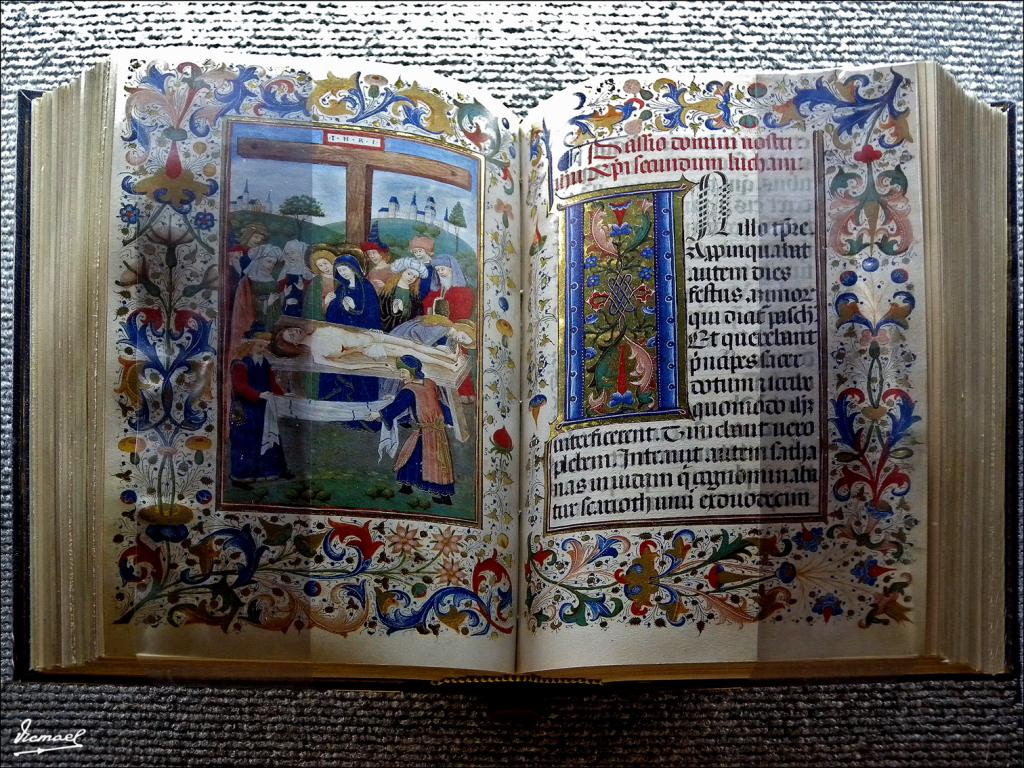 I·H·R·I
Passio domini nostri
ihu Xpi secundum lucham
N illo tpre
Appinquabat
autem dies
festus azimor
qui dicit pasch
Et querebant
pncipes sacer
dotum
quomodo
interficerent. Timebant vero
plebem. Intravit autem satha
nas in iudam q cognominaba
tur scarioth unu ex duodecim
Vicmael